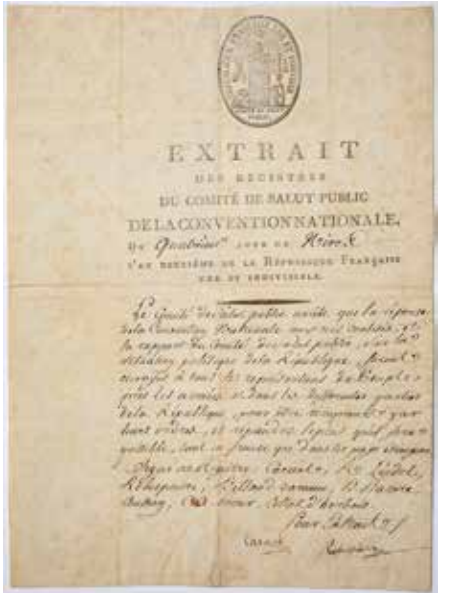 EXTRAIT
DES REGISTRES
DU COMITÉ DE SALUT PUBLIC
DE LA CONVENTION NATIONALE,
Du Quatrième jour de Nivose
l'an deuxième de la République Française
une et indivisible.
Le Comité de salut public arrête que la réponse
de la Convention Nationale aux rois coalisés, et
le rapport du Comité de salut public, sur la
situation politique de la République, seront
envoyés à tous les représentans du Peuple
près les armées et dans les différentes parties
de la République, pour être réimprimés par
leurs ordres, et répandus le plus qu'il sera
possible, tant en france que dans les pays étrangers
Signé au registre: Carnot, R. Lindet,
Robespierre, Billaud varenne, B. Barere
Collot d'herbois
Pour Extrait
Carnot